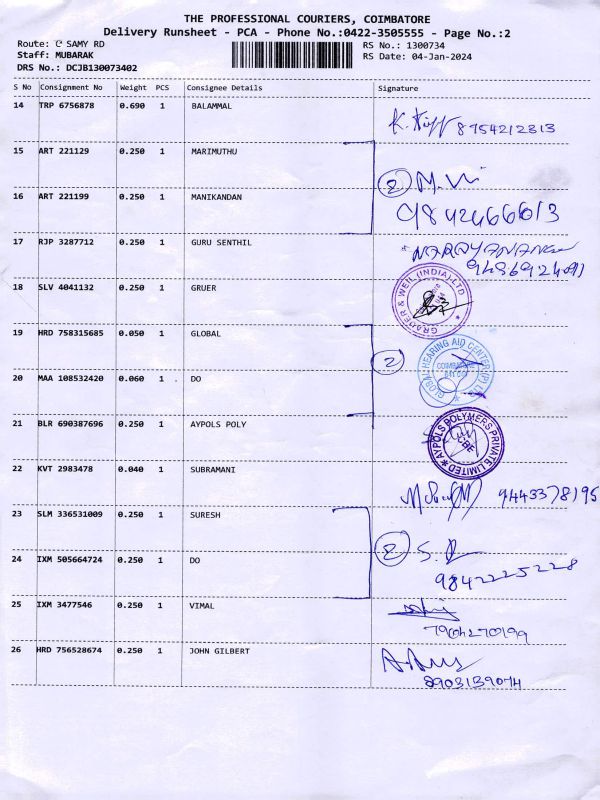 THE PROFESSIONAL COURIERS, COIMBATORE
Delivery Runsheet - PCA - Phone No.:0422-3505555 - Page No.:2
Route: C SAMY RD
RS No.: 1300734
Staff: MUBARAK
RS Date: 04-Jan-2024
DRS No.: DCJB130073402
S No Consignment No Weight PCS Consignee Details Signature
14 TRP 6756878 0.690 1 BALAMMAL
8754212313
15 ART 221129 0.250 1 MARIMUTHU
2
16 ART 221199 0.250 1 MANIKANDAN
9842466613
17 RJP 3287712 0.250 1 GURU SENTHIL
NARAYANAN
18 SLV 4041132 0.250 1 GRUER
GRADER & WEIL (INDIA) LTD
19 HRD 758315685 0.050 1 GLOBAL
2
GLOBAL HEARING AID CENTER (P) LTD
COIMBATORE
20 MAA 108532420 0.060 1 . DO
21 BLR 690387696 0.250 1 AYPOLS POLY
AYPOLS POLYMERS PRIVATE LIMITED
CBE
22 KVT 2983478 0.040 1 SUBRAMANI
9443378195
23 SLM 336531009 0.250 1 SURESH
2
24 IXM 505664724 0.250 1 DO
9842225228
25 IXM 3477546 0.250 1 VIMAL
7904270199
26 HRD 756528674 0.250 1 JOHN GILBERT
8903139074